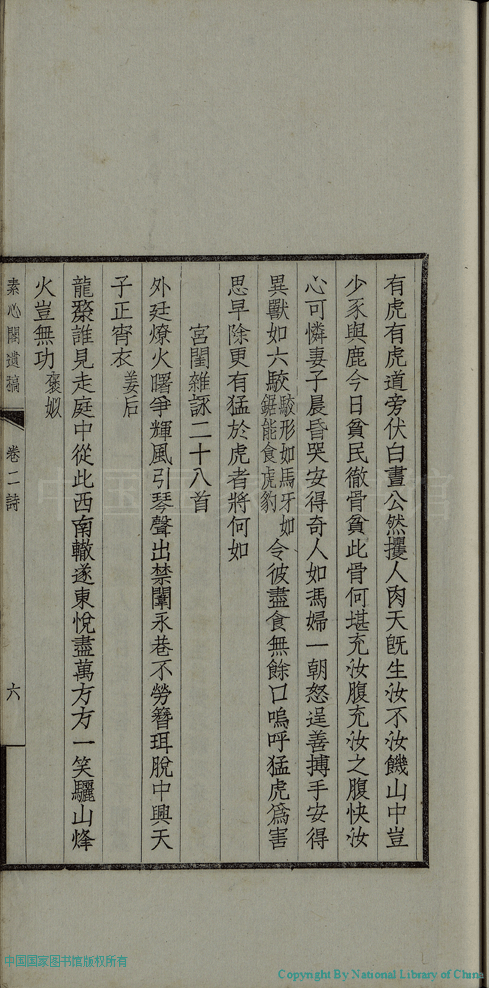 有虎有虎道旁伏白晝公然攫人肉天旣生汝不汝饑山中豈
少豕與鹿今日貧民徹骨貧此骨何堪充汝腹充汝之腹快汝
心可憐妻子晨昏哭安得奇人如馮婦一朝怒逞善搏手安得
異獸如六駮駮形如馬牙如鋸能食虎豹令彼盡食無餘口嗚呼猛虎爲害
思早除更有猛於虎者將何如
宮閨雜詠二十八首
外廷燎火曙爭輝風引琴聲出禁闈永巷不勞簪珥脫中興天
子正宵衣姜后
龍漦誰見走庭中從此西南轍遂東悅盡萬方方一笑驪山烽
火豈無功褒姒
素心閣遺稿
卷二詩
六
中国国家图书馆
中国国家图书馆版权所有
Copyright By National Library of China